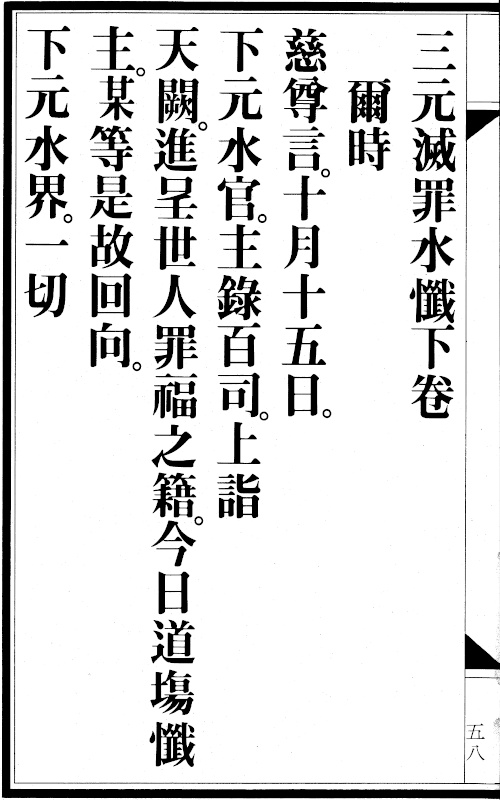 三元滅罪水懺下卷
爾時
慈尊言。十月十五日。
下元水官。主錄百司。上詣
天闕。進呈世人罪福之籍。今日道塲懺
主。某等是故回向。
下元水界。一切
五八